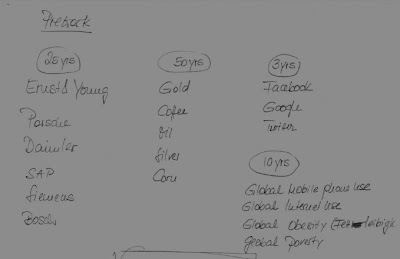 Prebrock
20 yrs
Ernst & Young
Porsche
Daimler
SAP
Siemens
Bosch
50 yrs
Gold
Cofee
Oil
Silver
Corn
3 yrs
Facebook
Google
Twitter
10 yrs
Global Mobile phone use
Global Internet use
Global Obesity
Global poverty